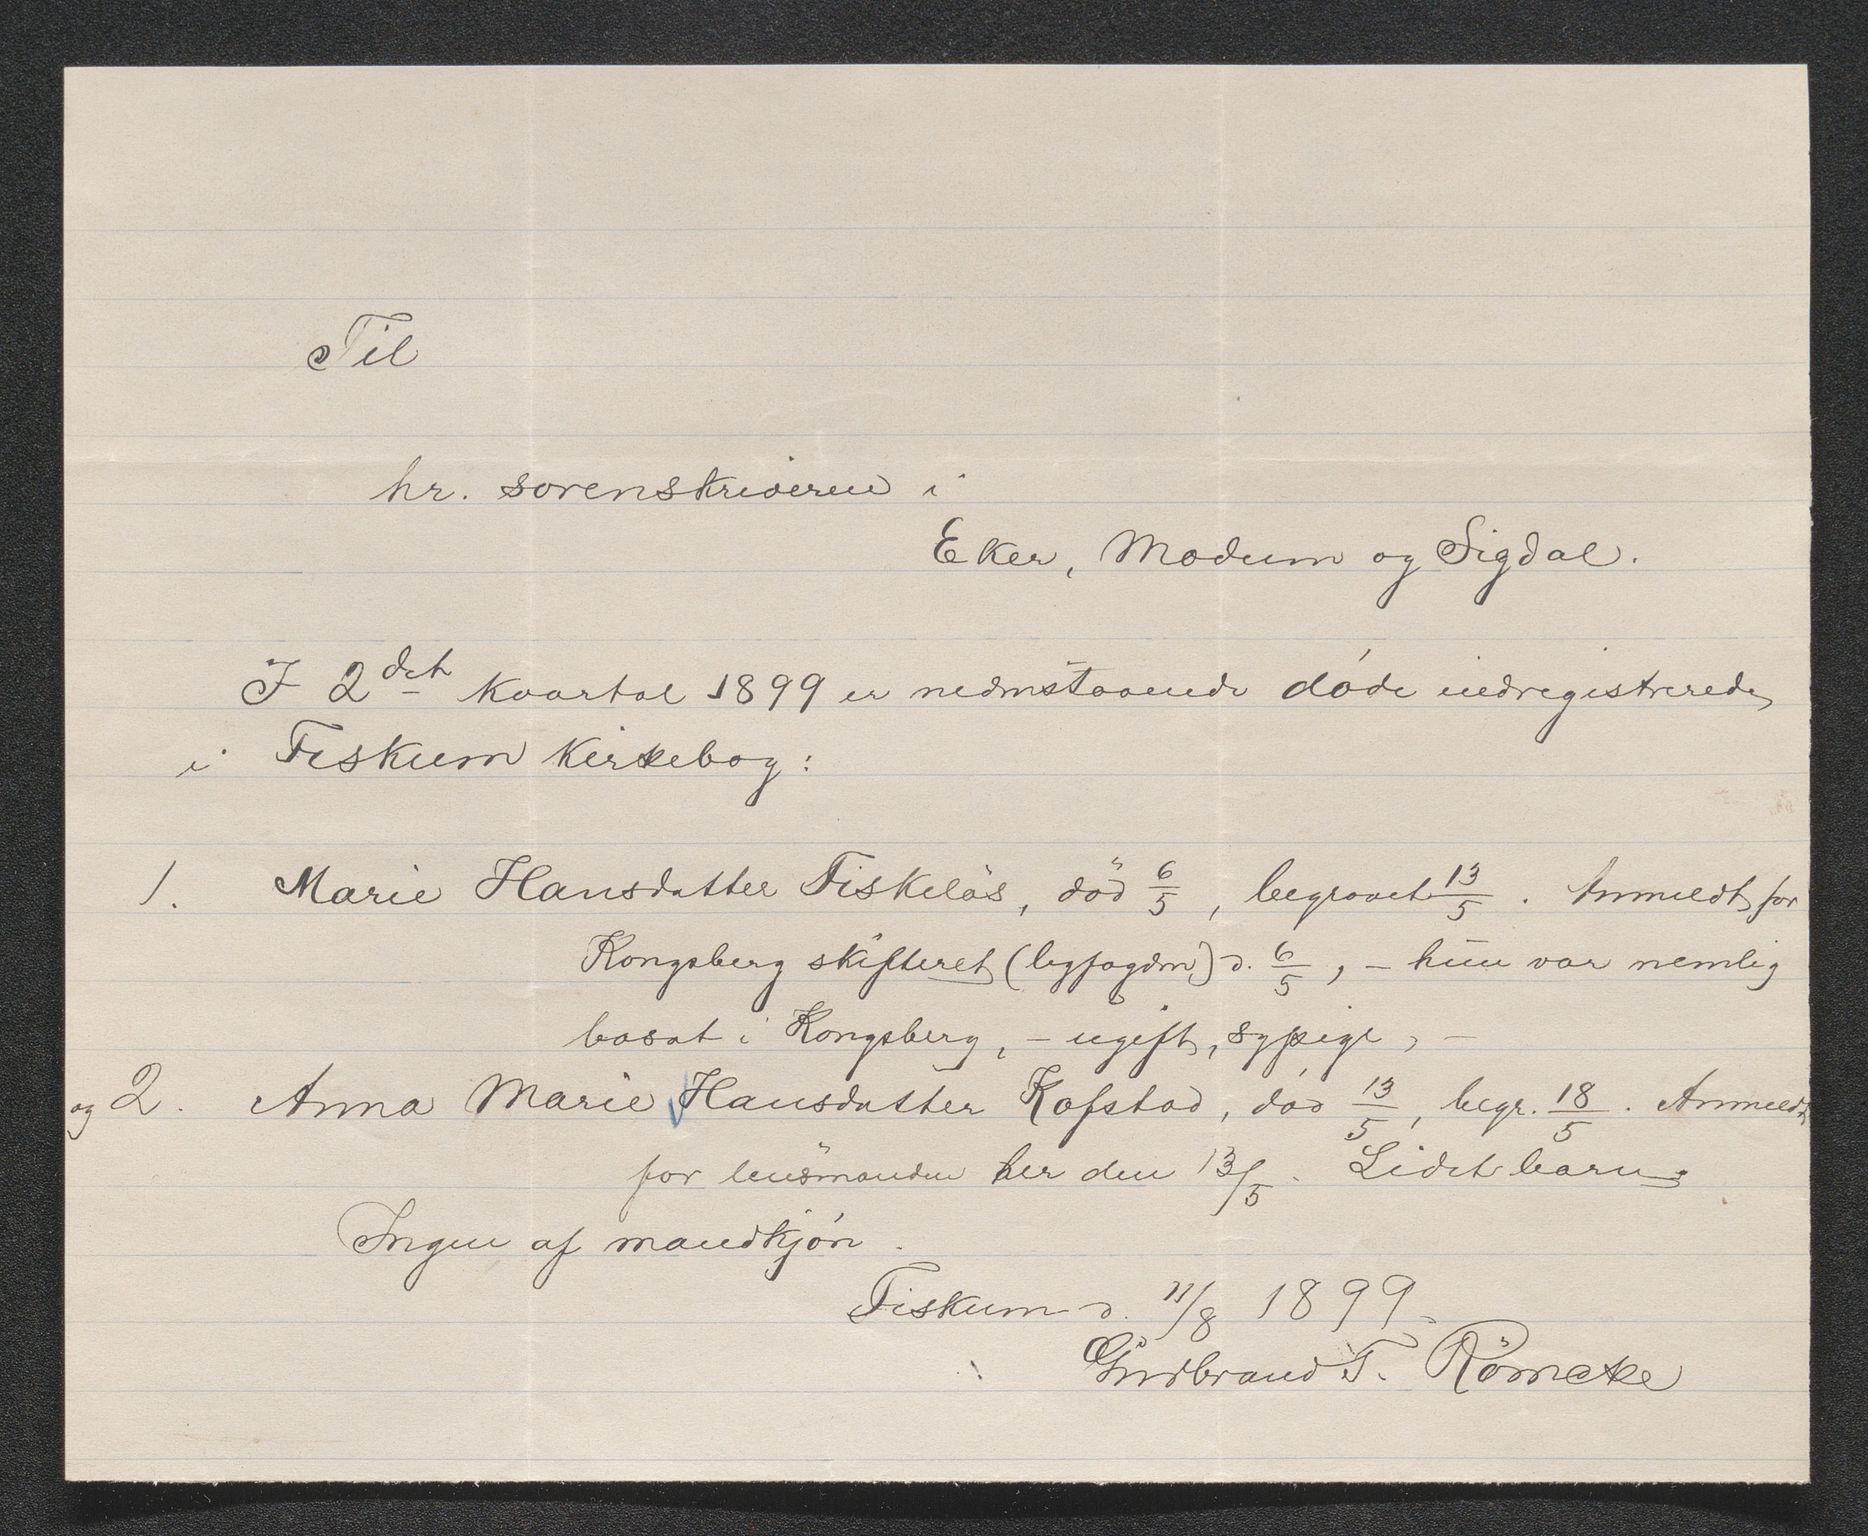 Til
hr. sorenskriveren i
Eker, Modum og Sigdal.
I 2det kvartal 1899 er nedenstaaende døde indregistrerede
i Fiskum kirkebog:
1. Marie Hansdatter Fiskeløs, død 6/5, begravet 13/5. Anmeldt for
Kongsberg skifteret (byfogdm) d. 6/5, – hun var nemlig
bosat i Kongsberg, – ugift, sypige, –
og 2. Anna Marie Hansdatter Kofstad, død 13/5, begr. 18/5. Anmeldt
for lensmanden her den 13/5. Lidet barn.
Ingen af mandkjøn.
Fiskum d. 11/8 1899.
Gudbrand T. Römcke